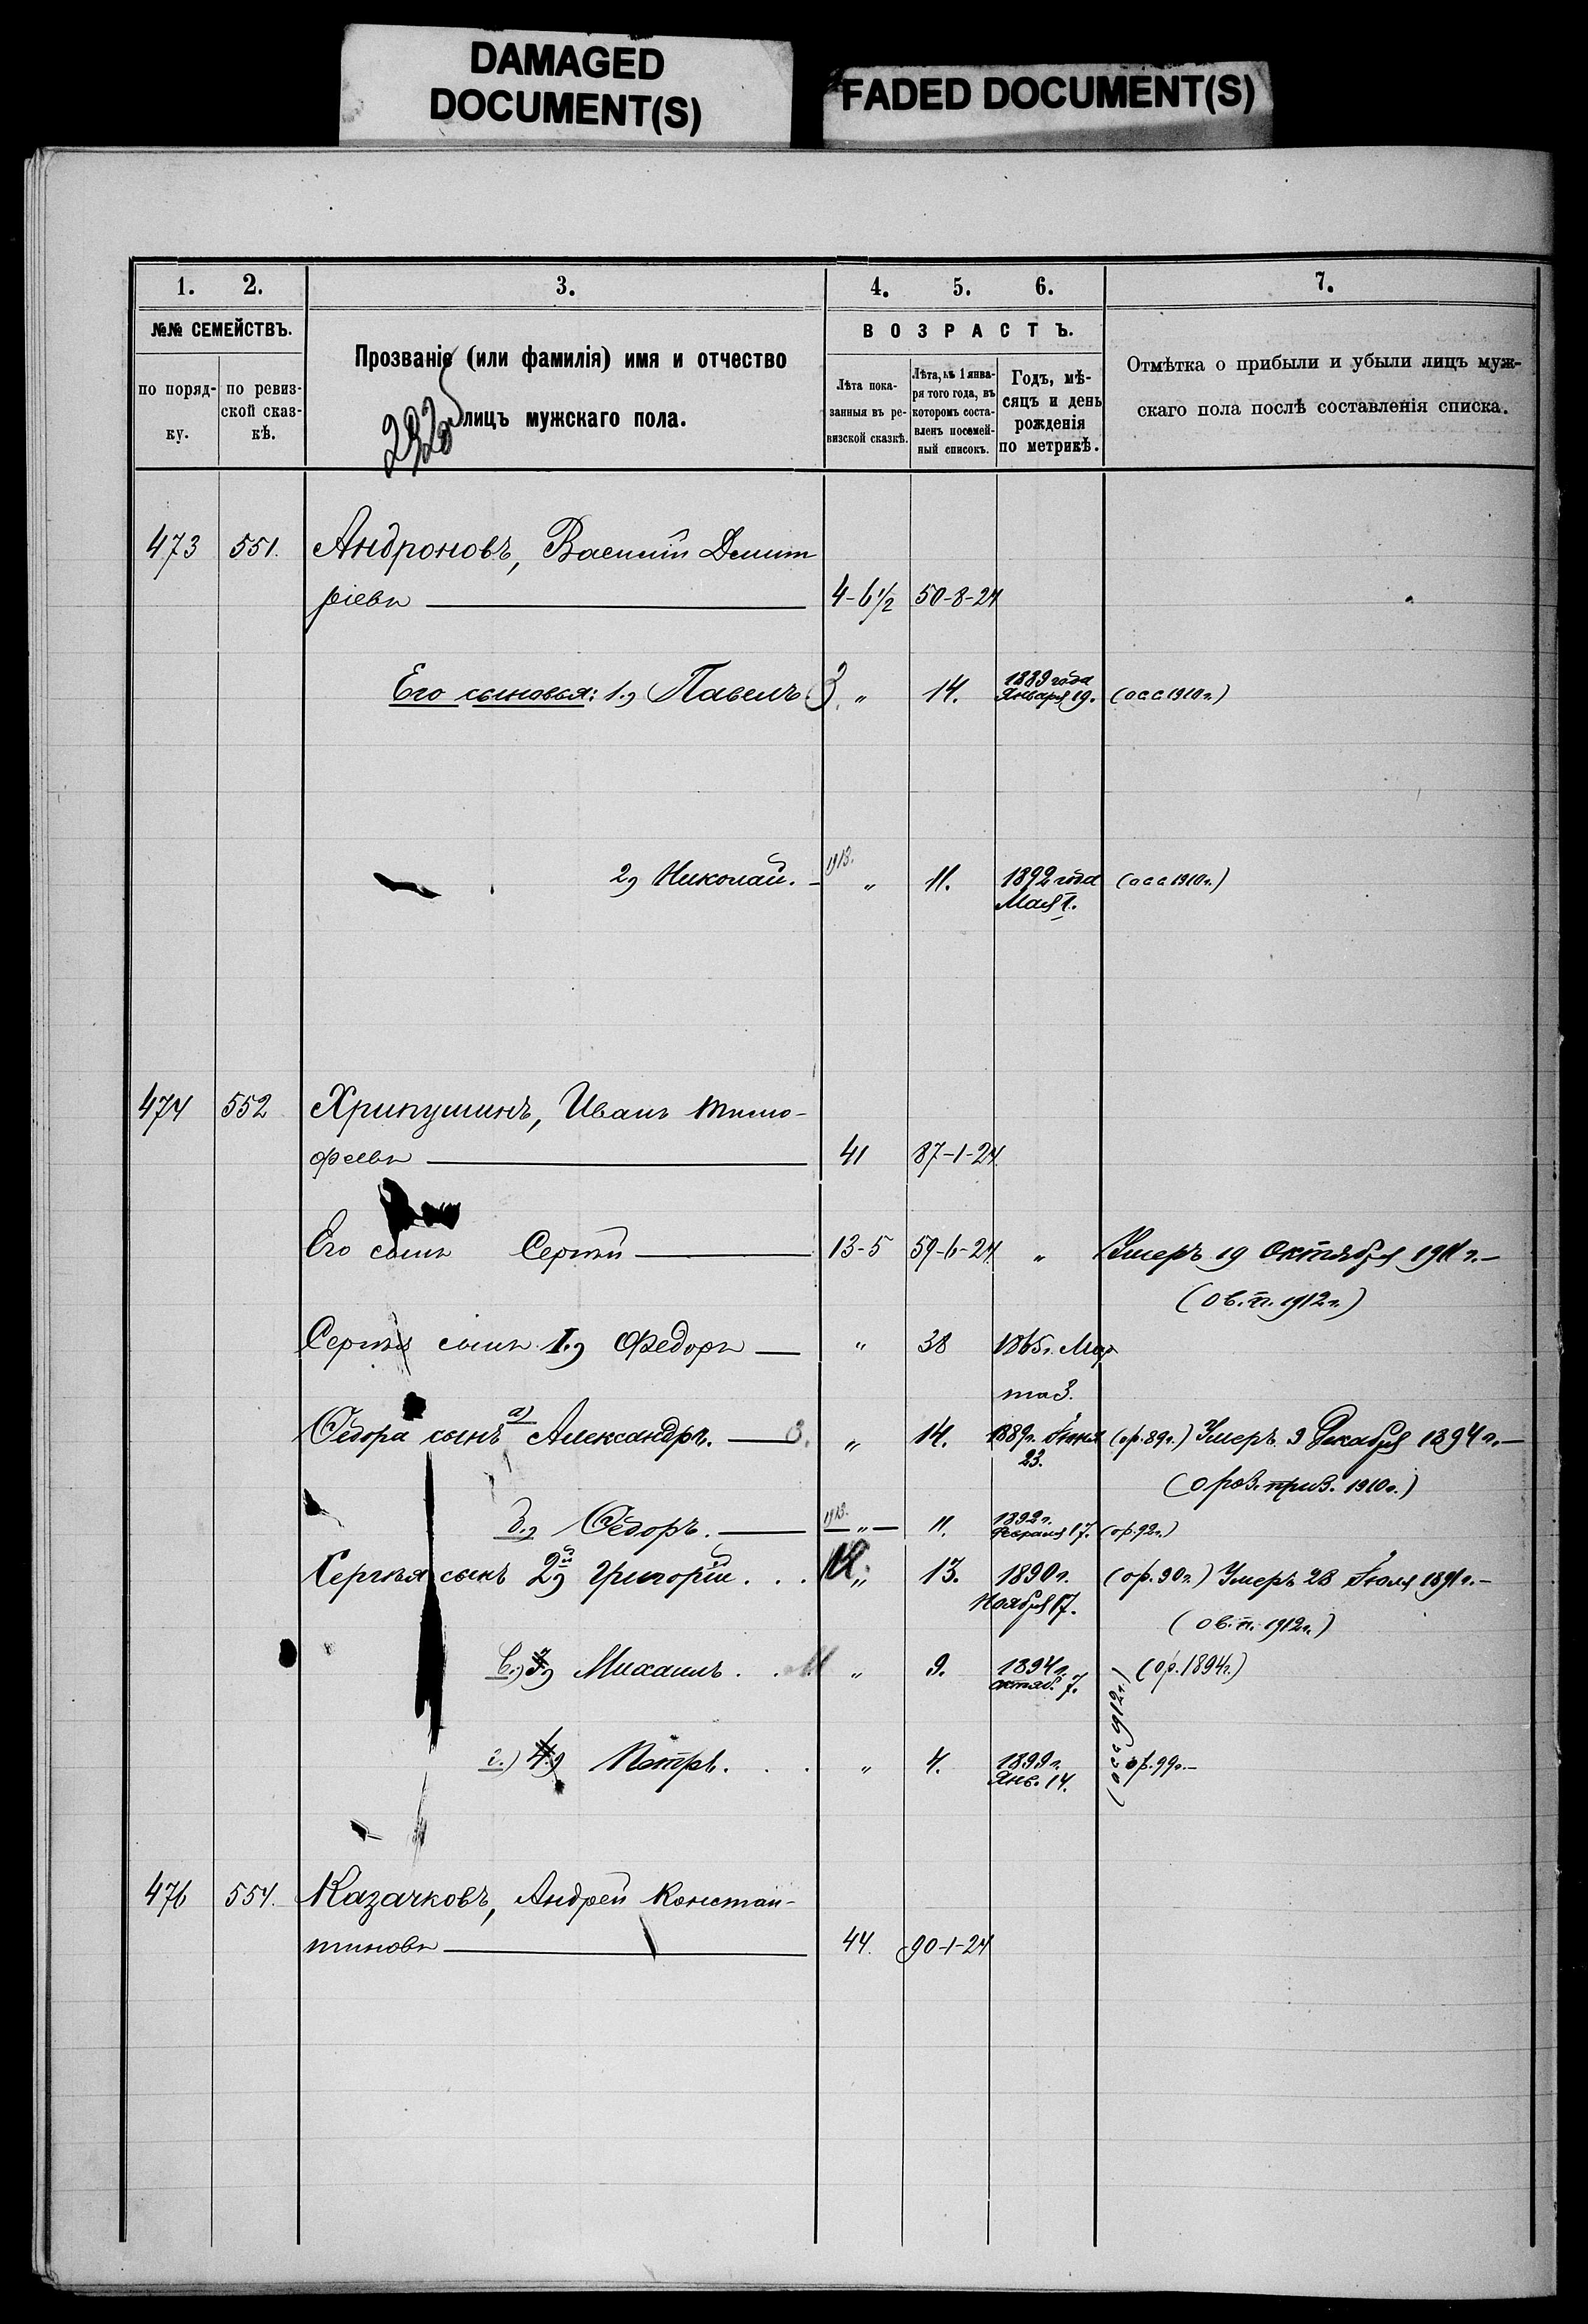 DAMAGED
DOCUMENT(S)
FADED DOCUMENT(S)
1. 2. 3. 4. 5. 6. 7.
№№ СЕМЕЙСТВЪ.
по поряд-
ку.
по ревиз-
ской сказ-
кѣ.
Прозваніе (или фамилія) имя и отчество
лицъ мужскаго пола.
ВОЗРАСТЪ.
Лѣта пока-
занныя въ ре-
визской сказкѣ.
Лѣта, къ 1 янва-
ря того года, въ
которомъ соста-
вленъ посемей-
ный списокъ.
Годъ, мѣ-
сяцъ и день
рожденія
по метрикѣ.
Отмѣтка о прибыли и убыли лицъ муж-
скаго пола послѣ составленія списка.
473 551. Андроновъ, Василій Димит
ріевъ 4-6½ 50-8-24
Его сыновья: 1, Павелъ З. „ 14. 1889 года
Января 19. (осс 1910 г.)
2, Николай. 1913. „ 11. 1892 года (осс 1910 г.)
Мая 1.
474 552 Хрипушинъ, Иванъ Тимо-
феевъ 41 87-1-24
Его сынъ Сергѣй 13-5 59-6-24 „ Умеръ 19 Октября 1911 г.-
(ов.п. 1912 г.)
Сергѣя сынъ 1, Федоръ „ 38 1865 г. Мар
та 3.
Ѳедора сынъ а) Александръ. З. „ 14. 1889 г. Іюня (ор. 89 г.) Умеръ 9 Декабря 1894 г.-
23.
(о роз. приз. 1910 г.)
б, Ѳедоръ. 1913. „ 11. 1892 г.
Февраля 17. (ор. 92 г.)
Сергѣя сынъ 2й, Григорій . . . „ 13. 1890 г. (ор. 90 г.) Умеръ 28 Іюля 1891 г.-
Ноября 17.
(ов.п. 1912 г.)
в, 3, Михаилъ . . М „ 9. 1894 г. (ор. 1894 г.)
октяб. 7.
(осс 1912 г.)
г.) 4, Петръ. . . „ 4. 1899 г. ор. 99 г.-
Янв. 14.
476 554. Казачковъ, Андрей Констан-
тиновъ 44. 90-1-24